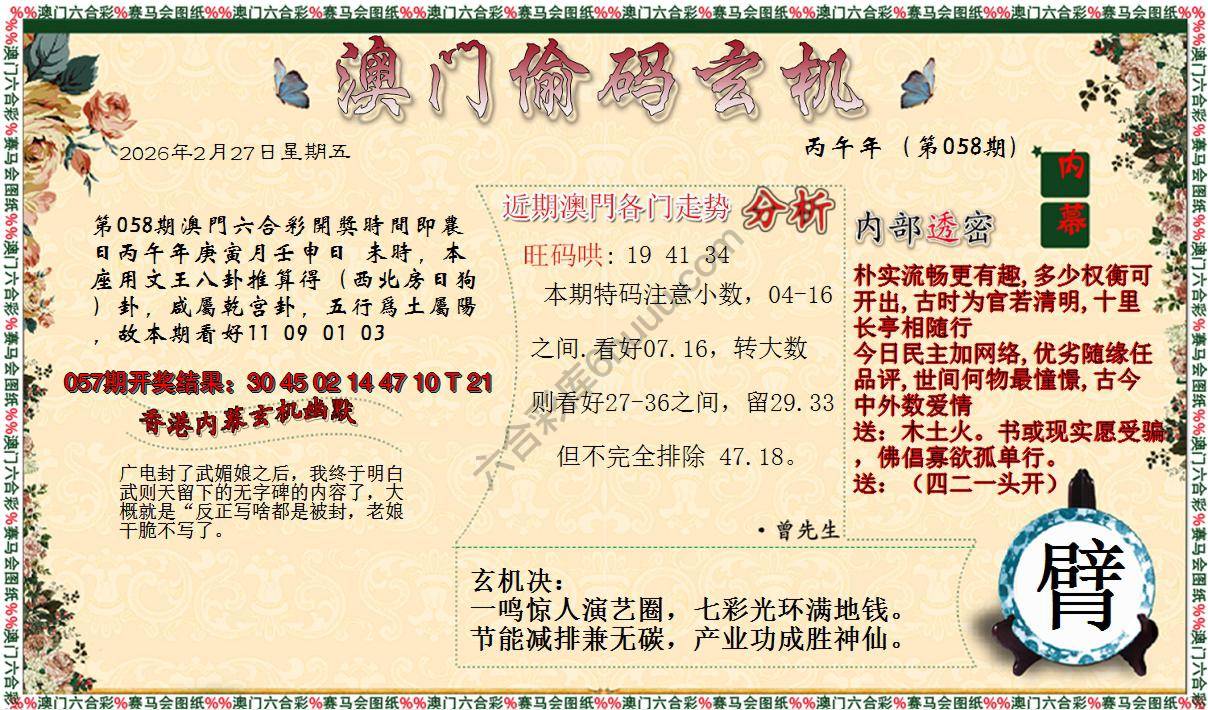 %%澳门六合彩%赛马会图纸%%澳门六合彩%赛马会图纸%%澳门六合彩%赛马会图纸%%澳门六合彩%赛马会图纸%%澳门六合彩%赛马会图纸%%澳门六合彩%赛马会图纸%%
澳门偷码玄机
2026年2月27日星期五
丙午年（第058期）
内
幕
第058期澳門六合彩開獎時間即農
日丙午年庚寅月壬申日 未時，本
座用文王八卦推算得（西北房日狗
）卦，咸屬乾宫卦，五行爲土屬陽
，故本期看好11 09 01 03
057期开奖结果：30 45 02 14 47 10 T 21
香港内幕玄机幽默
广电封了武媚娘之后，我终于明白
武则天留下的无字碑的内容了，大
概就是“反正写啥都是被封，老娘
干脆不写了。
近期澳門各门走势 分析
旺码哄: 19 41 34
本期特码注意小数，04-16
之间.看好07.16，转大数
则看好27-36之间，留29.33
但不完全排除 47.18。
·曾先生
内部透密
朴实流畅更有趣,多少权衡可
开出,古时为官若清明,十里
长亭相随行
今日民主加网络,优劣随缘任
品评,世间何物最憧憬,古今
中外数爱情
送：木土火。书或现实愿受骗
，佛倡寡欲孤单行。
送：（四二一头开）
玄机决：
一鸣惊人演艺圈，七彩光环满地钱。
节能减排兼无碳，产业功成胜神仙。
臂
%%澳门六合彩%赛马会图纸%%澳门六合彩%赛马会图纸%%澳门六合彩%赛马会图纸%%澳门六合彩%赛马会图纸%%澳门六合彩%赛马会图纸%%澳门六合彩%赛马会图纸%%